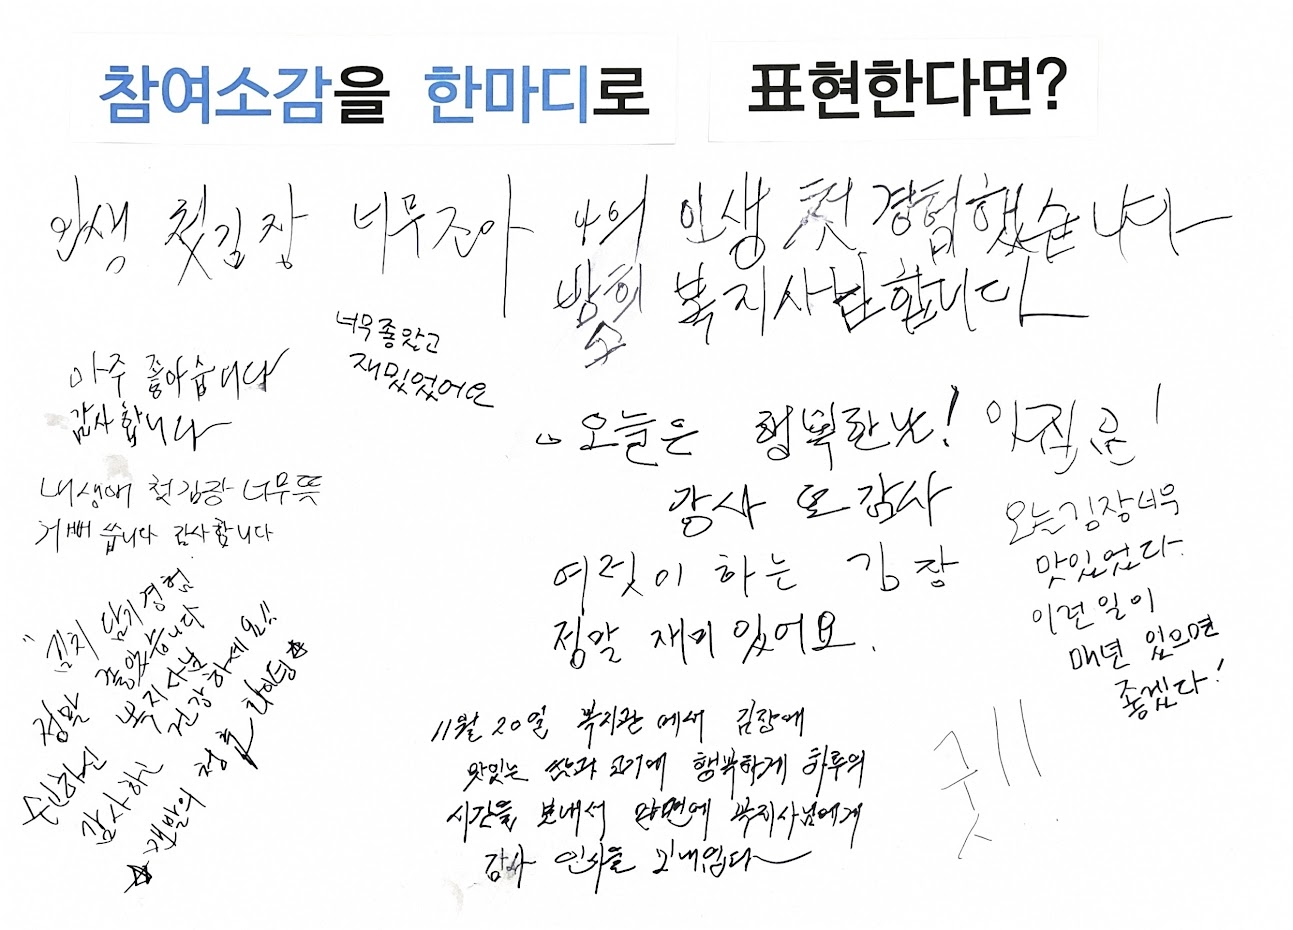 참여소감을 한마디로 표현한다면?
인생 첫김장 너무조아
나의 인생 첫 경험했습니다
복지사님합니다
너무좋았고
재밌었어요
아주 좋아습니다
감사합니다
내생애 첫김장 너무뜻
기뻐씁니다 감사합니다
"김치 담기경험
정말 즐었습니다
수고하신 복지사님
감사하고 건강하세요!!
청춘 화이팅
오늘은 행복한 날!
감사 또 감사
여럿이 하는 김장
정말 재미있어요.
오늘김장너무
맛있었다.
이런일이
매년 있으면
좋겠다!
11월 20일 복지관에서 김장에
맛있는 쌈과 고기에 행복하게 하루의
시간을 보내서 한면에 복지사님에게
감사 인사를 보내업다
굿!!